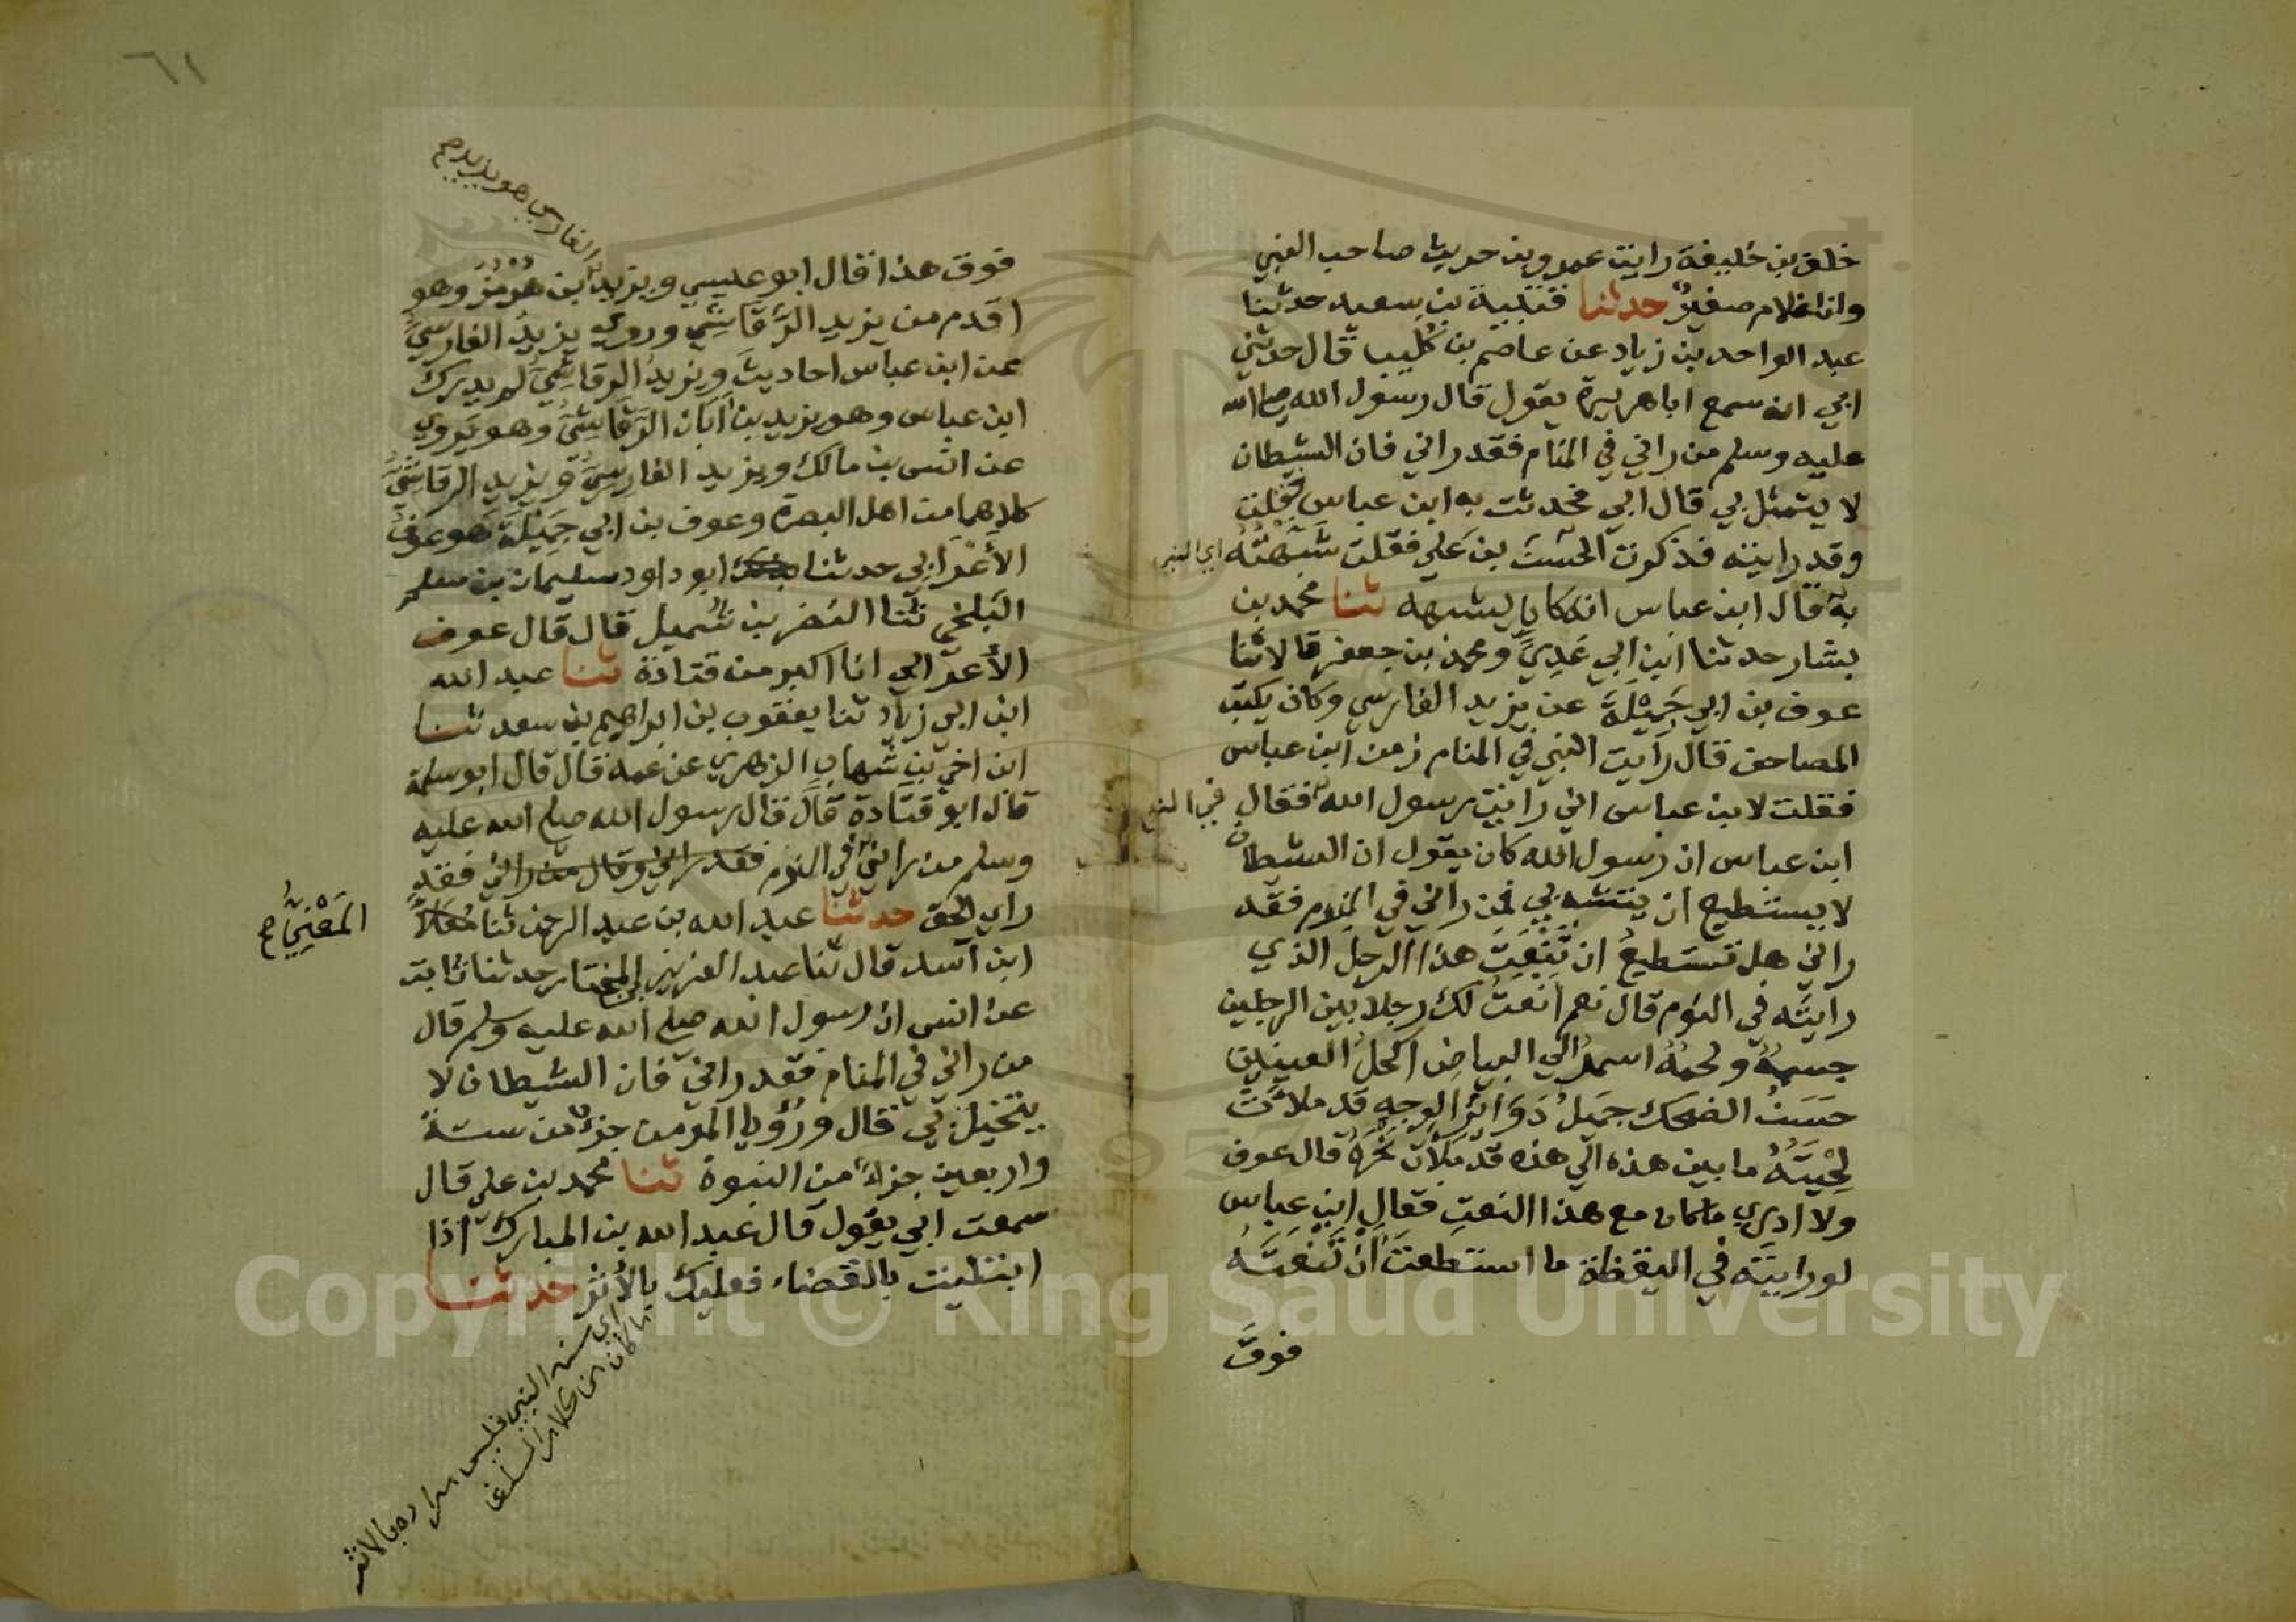 خلف بن خليفة رايت عمرو بن حريث صاحب النبي
وانا غلام صغير حدثنا قتيبة بن سعيد حدثنا
عبد الواحد بن زياد عن عاصم بن كُليب قال حدثني
ابي انه سمع ابا هريرة يقول قال رسول الله صلى الله
عليه وسلم من راني في المنام فقد راني فان الشيطان
لا يتمثل بي قال ابي فحدثت به ابن عباس فقلت
وقد رايته فذكرت الحسن بن علي فقلت شبهته اي النبي
به قال ابن عباس انه كان يشبهه ثنا محمد بن
بشار حدثنا ابن ابي عَدِيّ ومحمد بن جعفر قالا ثنا
عوف بن ابي جَمِيْلَة عن يزيد الفارسي وكان يكتب
المصاحف قال رايت النبي في المنام زمن ابن عباس
فقلت لابن عباس اني رايت رسول الله فقال في النوم
ابن عباس ان رسول الله كان يقول ان الشيطان
لا يستطيع ان يتشبه بي فمن راني في النوم فقد
راني هل تستطيعُ ان تَنْعَتَ هذا الرجل الذي
رايتَه في النوم قال نعم انعتُ لك رجلا بين الرجلين
جسمهُ ولحمهُ اسمرُ الي البياضِ اكحلُ العينين
حَسَنُ الضحك جميلُ دَوَائِرِ الوجهِ قد ملأَتْ
لِحْيَتُهُ ما بين هذه الي هذه قد مَلأت نَحْرَهُ قال عوف
ولا ادري ما كان مع هذا النعتِ فقال ابن عباس
لو رايتَه في اليقظة ما استطعتَ أنْ تَنْعَتَهُ
فوقَ
٦١
الفارسي هو يزيد صح
فوق هذا قال ابو عيسي ويزيد بن هُرْمُز وهو
اقدم من يزيد الرَّقَاشِي وروي يزيدُ الفارسيُّ
عن ابن عباس احاديثَ ويزيدُ الرقاشِيُّ لم يدرك
ابن عباس وهو يزيد بن ابَان الرَّقَاشِيُّ وهو يَروي
عن انس بن مالك ويزيد الفارِسيُّ ويزيد الرقاشِيُّ
كلاهما من اهل البصرة وعوف بن ابي جَمِيْلَة هو عوفُ
الأَعْرَابِي حدثنا ابو داود سليمان بن سلم
البَلخي ثنا النضر بن شُميل قال قال عوف
الأعرابي انا اكبر من قتادة ثنا عبد الله
ابن ابي زياد ثنا يعقوب بن ابراهيم بن سعد ثنا
ابن اخي بن شهابِ الزهري عن عمه قال قال ابو سلمة
قال ابو قتادة قال قال رسول الله صلى الله عليه
وسلم من راني في النوم فقد راني وقال من راني فقد
راي الحق حدثنا عبد الله بن عبد الرحمن ثنا مُعَلّا
المَعْنِيّ صح
ابن اَسد قال ثنا عبد العزيز بن المختار حدثنا ثابت
عن انس ان رسول الله صلى الله عليه وسلم قال
من راني في المنام فقد راني فان الشيطان لا
يتخيل بي قال ورُؤيا المومن جزءٌ من ستة
واربعين جزاءً من النبوة ثنا محمد بن علي قال
سمعت ابي يقول قال عبد الله بن المبارك اذا
ابتليت بالقضاء فعليك بالأثر حدثنا
اي سنة النبي فليس مراده بالاثر